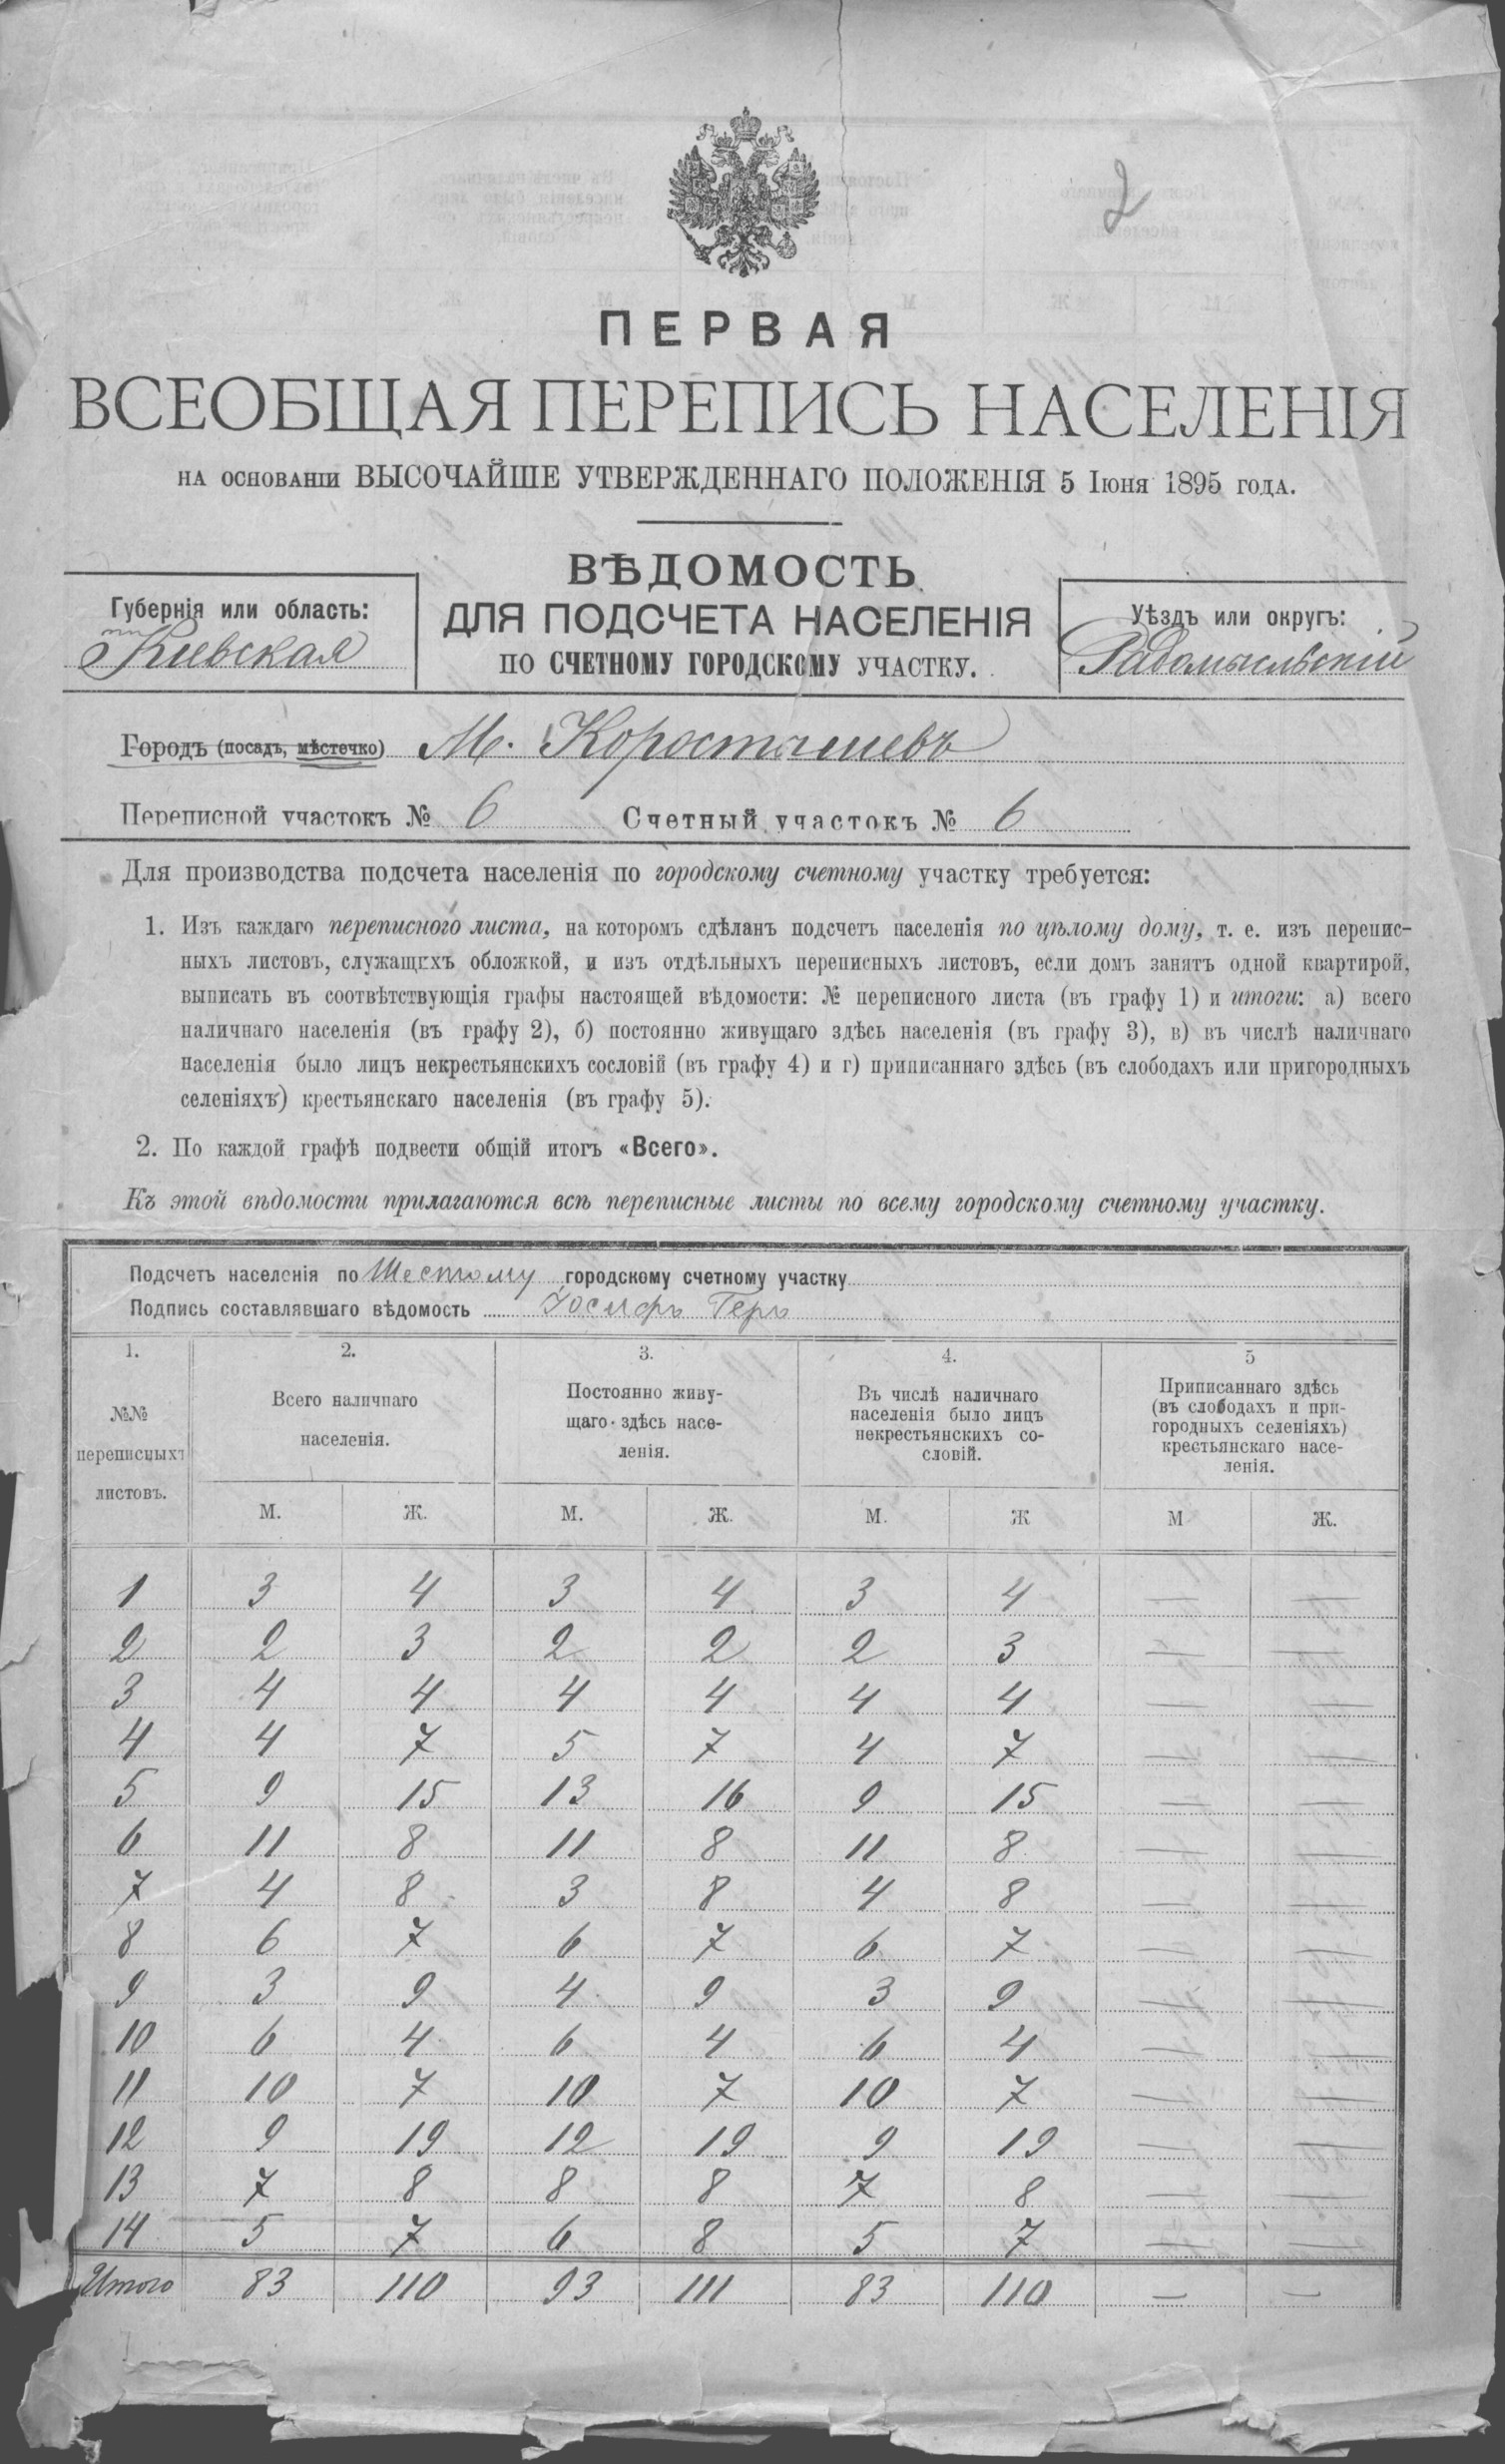 2
ПЕРВАЯ
ВСЕОБЩАЯ ПЕРЕПИСЬ НАСЕЛЕНІЯ
НА ОСНОВАНІИ ВЫСОЧАЙШЕ УТВЕРЖДЕННАГО ПОЛОЖЕНІЯ 5 Іюня 1895 ГОДА.
ВѢДОМОСТЬ
ДЛЯ ПОДСЧЕТА НАСЕЛЕНІЯ
ПО СЧЕТНОМУ ГОРОДСКОМУ УЧАСТКУ.
Губернія или область:
Кіевская
Уѣздъ или округъ:
Радомысльскій
Городъ (посадъ, мѣстечко) М. Коростышевъ
Переписной участокъ № 6 Счетный участокъ № 6
Для производства подсчета населенія по городскому счетному участку требуется:
1. Изъ каждаго переписного листа, на которомъ сдѣланъ подсчетъ населенія по цѣлому дому, т. е. изъ перепис-
ныхъ листовъ, служащихъ обложкой, и изъ отдѣльныхъ переписныхъ листовъ, если домъ занятъ одной квартирой,
выписать въ соотвѣтствующія графы настоящей вѣдомости: № переписного листа (въ графу 1) и итоги: а) всего
наличнаго населенія (въ графу 2), б) постоянно живущаго здѣсь населенія (въ графу 3), в) въ числѣ наличнаго
населенія было лицъ некрестьянскихъ сословій (въ графу 4) и г) приписаннаго здѣсь (въ слободахъ или пригородныхъ
селеніяхъ) крестьянскаго населенія (въ графу 5).
2. По каждой графѣ подвести общій итогъ «Всего».
Къ этой вѣдомости прилагаются всѣ переписные листы по всему городскому счетному участку.
Подсчетъ населенія по Шестому городскому счетному участку
Подпись составлявшаго вѣдомость Іосифъ Геръ
1. 2. 3. 4. 5
№№
переписныхъ
листовъ.
Всего наличнаго
населенія.
Постоянно живу-
щаго здѣсь насе-
ленія.
Въ числѣ наличнаго
населенія было лицъ
некрестьянскихъ со-
словій.
Приписаннаго здѣсь
(въ слободахъ и при-
городныхъ селеніяхъ)
крестьянскаго насе-
ленія.
М. Ж. М. Ж. М. Ж М Ж.
1 3 4 3 4 3 4 — —
2 2 3 2 2 2 3 — —
3 4 4 4 4 4 4 — —
4 4 7 5 7 4 7 — —
5 9 15 13 16 9 15 — —
6 11 8 11 8 11 8 — —
7 4 8 3 8 4 8 — —
8 6 7 6 7 6 7 — —
9 3 9 4 9 3 9 — —
10 6 4 6 4 6 4 — —
11 10 7 10 7 10 7 — —
12 9 19 12 19 9 19 — —
13 7 8 8 8 7 8 — —
14 5 7 6 8 5 7 — —
Итого 83 110 93 111 83 110 — —